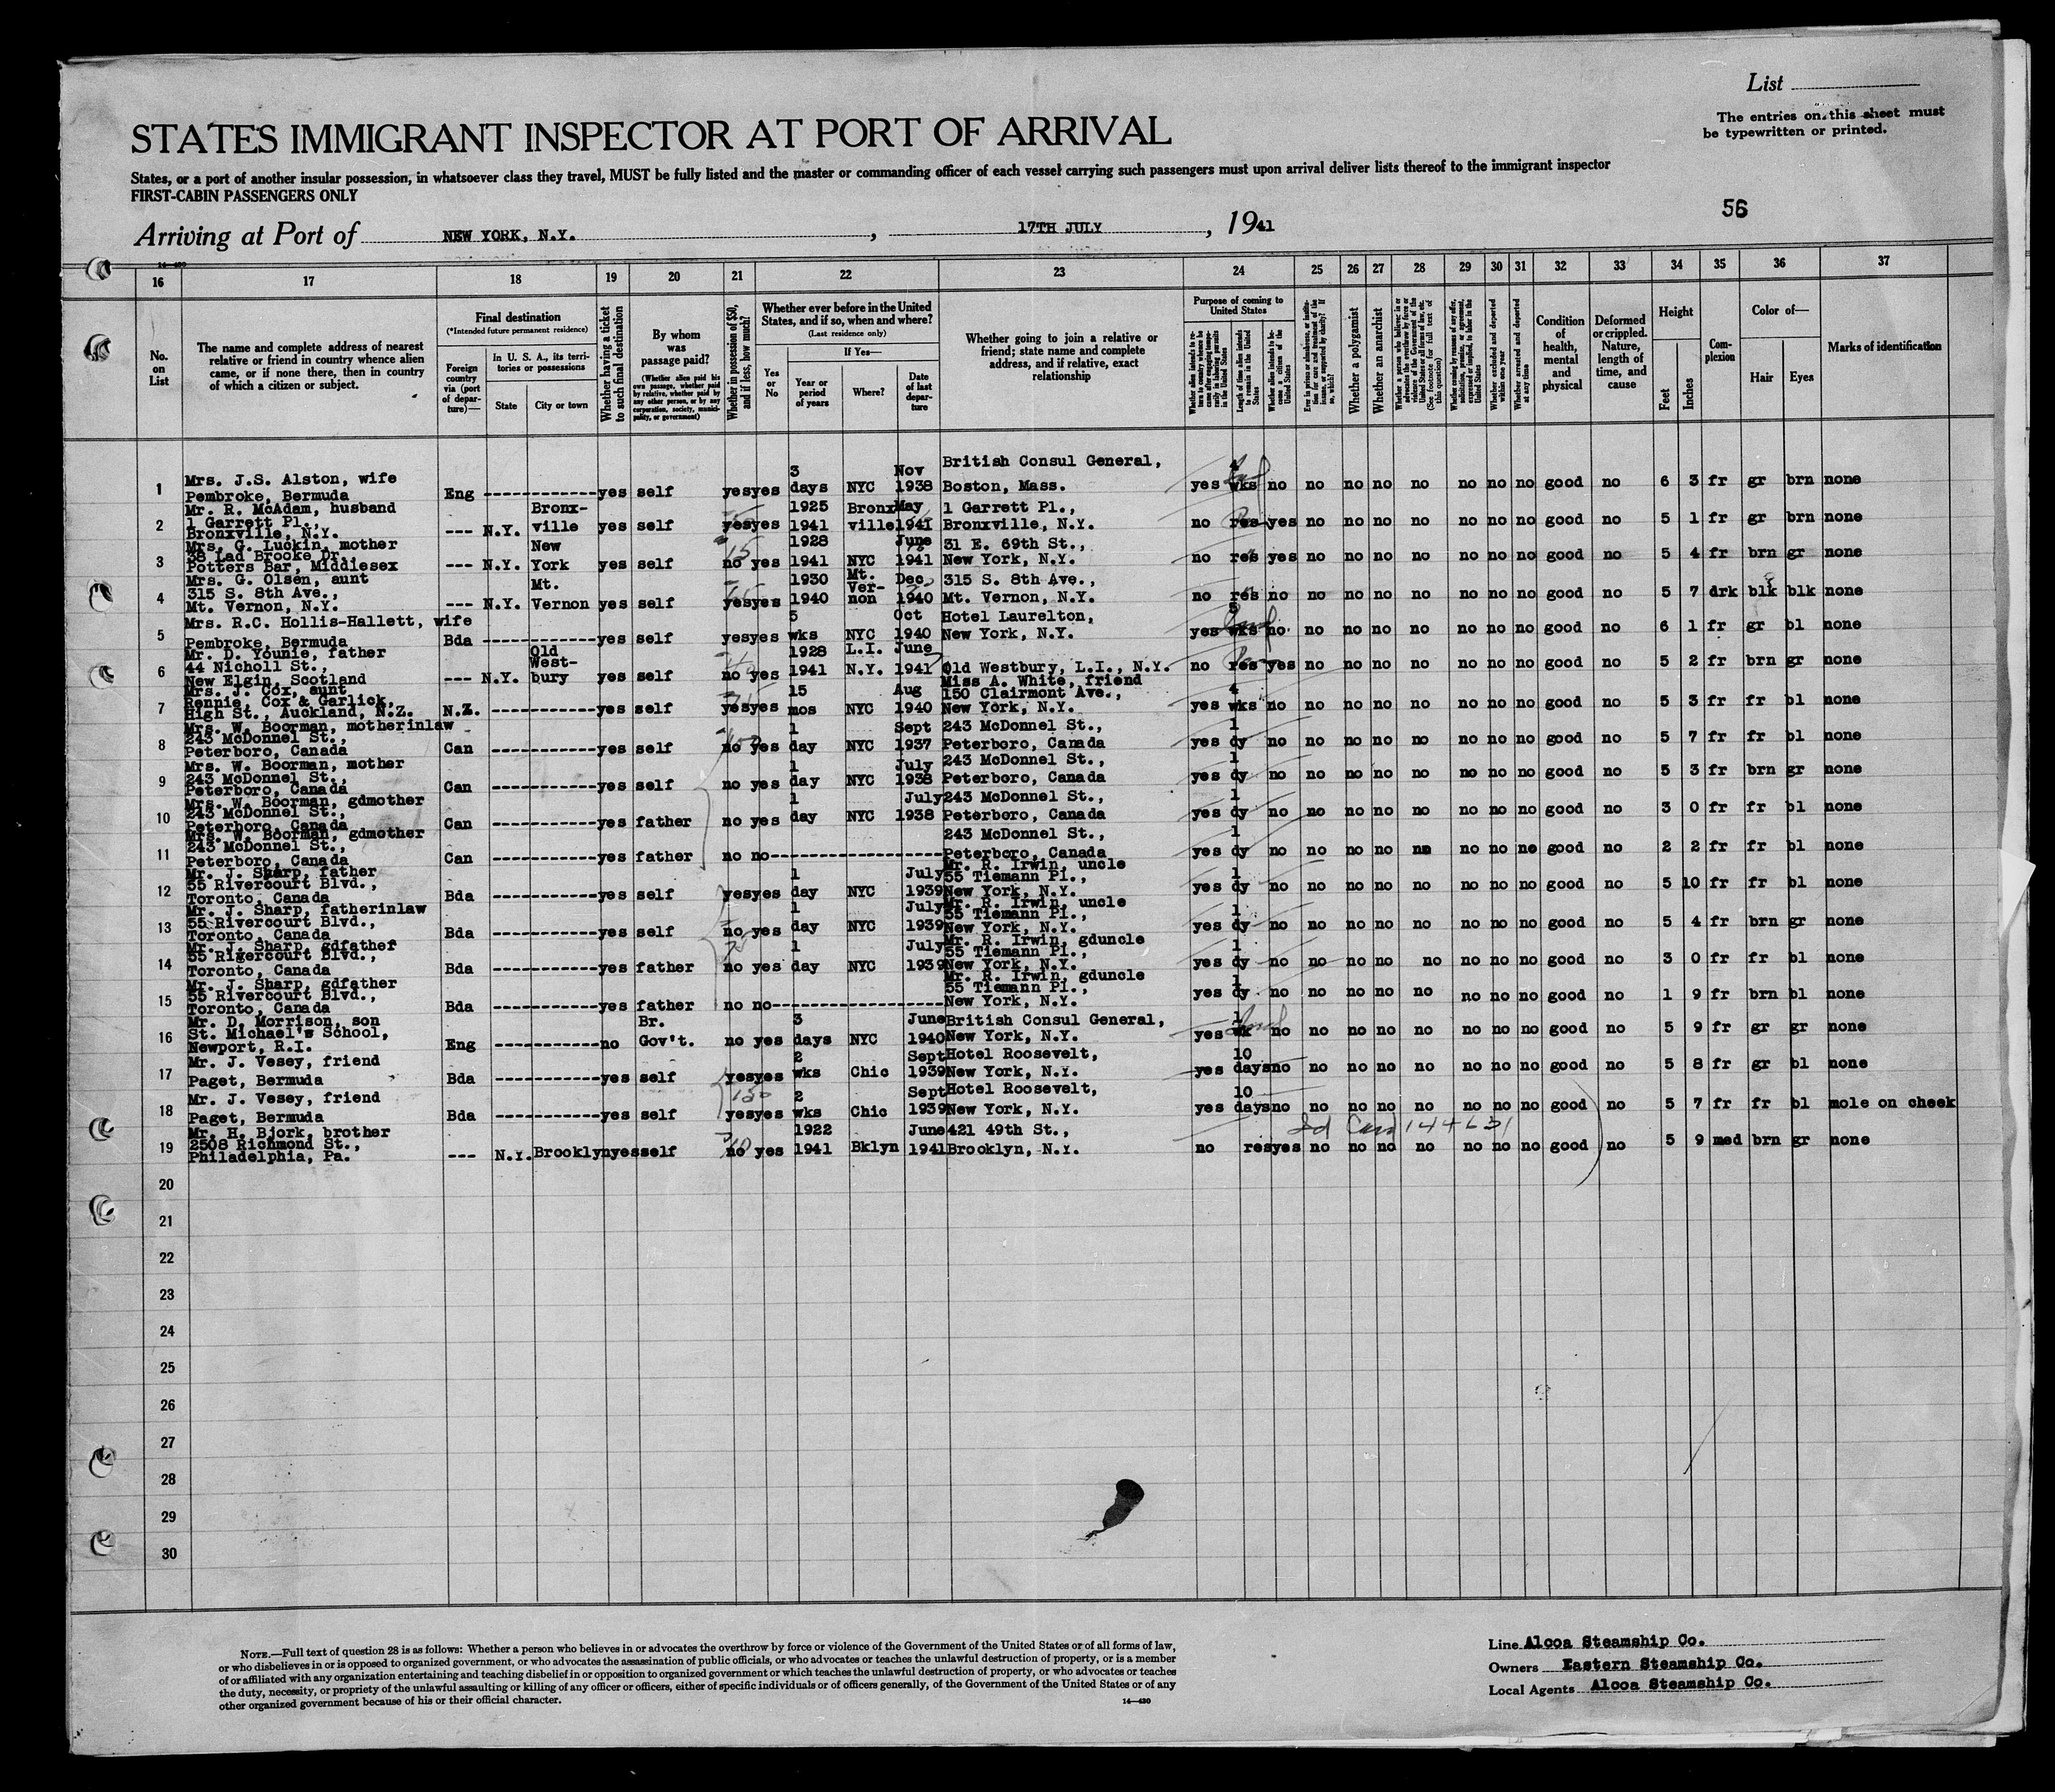 List
The entries on this sheet must
be typewritten or printed.
STATES IMMIGRANT INSPECTOR AT PORT OF ARRIVAL
States, or a port of another insular possession, in whatsoever class they travel, MUST be fully listed and the master or commanding officer of each vessel carrying such passengers must upon arrival deliver lists thereof to the immigrant inspector
FIRST-CABIN PASSENGERS ONLY
56
Arriving at Port of NEW YORK, N.Y. , 17TH JULY , 1941
14-480
16 17 18 19 20 21 22 23 24 25 26 27 28 29 30 31 32 33 34 35 36 37
No. on List
The name and complete address of nearest relative or friend in country whence alien came, or if none there, then in country of which a citizen or subject.
Final destination
(*Intended future permanent residence)
Foreign country via (port of departure)—
In U. S. A., its territories or possessions
State
City or town
Whether having a ticket to such final destination
By whom was passage paid?
(Whether alien paid his own passage, whether paid by relative, whether paid by any other person, or by any corporation, society, municipality, or government)
Whether in possession of $50, and if less, how much?
Whether ever before in the United States, and if so, when and where?
(Last residence only)
Yes or No
If Yes—
Year or period of years
Where?
Date of last departure
Whether going to join a relative or friend; state name and complete address, and if relative, exact relationship
Purpose of coming to United States
Whether a polygamist
Whether an anarchist
Whether excluded and deported within one year
Whether arrested and deported at any time
Condition of health, mental and physical
Deformed or crippled. Nature, length of time, and cause
Height
Feet
Inches
Complexion
Color of—
Hair
Eyes
Marks of identification
1 Mrs. J.S. Alston, wife Pembroke, Bermuda Eng yes self yes yes 3 days NYC Nov 1938 British Consul General, Boston, Mass. yes 4 wks no no no no no no no no good no 6 3 fr gr brn none
2 Mr. R. McAdam, husband 1 Garrett Pl., Bronxville, N.Y. --- N.Y. Bronx-ville yes self yes yes 1925 1941 Bronxville May 1941 1 Garrett Pl., Bronxville, N.Y. no res yes no no no no no no no good no 5 1 fr gr brn none
3 Mrs. G. Luckin, mother 38 Lad Brooke Dr. Potters Bar, Middlesex --- N.Y. New York yes self no 15 yes 1928 1941 NYC June 1941 31 E. 69th St., New York, N.Y. no res yes no no no no no no no good no 5 4 fr brn gr none
4 Mrs. G. Olsen, aunt 315 S. 8th Ave., Mt. Vernon, N.Y. --- N.Y. Mt. Vernon yes self yes yes 1930 1940 Mt. Ver-non Dec 1940 315 S. 8th Ave., Mt. Vernon, N.Y. no res no no no no no no no no good no 5 7 drk blk blk none
5 Mrs. R.C. Hollis-Hallett, wife Pembroke, Bermuda Bda yes self yes yes 5 wks NYC Oct 1940 Hotel Laurelton, New York, N.Y. yes 3 wks no no no no no no no no good no 6 1 fr gr bl none
6 Mr. D. Younie, father 44 Nicholl St., New Elgin, Scotland --- N.Y. Old West-bury yes self no yes 1928 1941 L.I. N.Y. June 1941 Old Westbury, L.I., N.Y. no res yes no no no no no no no good no 5 2 fr brn gr none
7 Mrs. J. Cox, aunt Rennie, Cox & Garlick, High St., Auckland, N.Z. N.Z. yes self yes yes 15 mos NYC Aug 1940 Miss A. White, friend 150 Clairmont Ave., New York, N.Y. yes 4 wks no no no no no no no no good no 5 3 fr fr bl none
8 Mrs. W. Boorman, motherinlaw 243 McDonnel St., Peterboro, Canada Can yes self no yes 1 day NYC Sept 1937 243 McDonnel St., Peterboro, Canada yes 1 dy no no no no no no no no good no 5 7 fr fr bl none
9 Mrs. W. Boorman, mother 243 McDonnel St., Peterboro, Canada Can yes self no yes 1 day NYC July 1938 243 McDonnel St., Peterboro, Canada yes 1 dy no no no no no no no no good no 5 3 fr brn gr none
10 Mrs. W. Boorman, gdmother 243 McDonnel St., Peterboro, Canada Can yes father no yes 1 day NYC July 1938 243 McDonnel St., Peterboro, Canada yes 1 dy no no no no no no no no good no 3 0 fr fr bl none
11 Mrs. W. Boorman, gdmother 243 McDonnel St., Peterboro, Canada Can yes father no no 243 McDonnel St., Peterboro, Canada yes 1 dy no no no no no no no no good no 2 2 fr fr bl none
12 Mr. J. Sharp, father 55 Rivercourt Blvd., Toronto, Canada Bda yes self yes yes 1 day NYC July 1939 Mr. R. Irwin, uncle 55 Tiemann Pl., New York, N.Y. yes 1 dy no no no no no no no no good no 5 10 fr fr bl none
13 Mr. J. Sharp, fatherinlaw 55 Rivercourt Blvd., Toronto, Canada Bda yes self no yes 1 day NYC July 1939 Mr. R. Irwin, uncle 55 Tiemann Pl., New York, N.Y. yes 1 dy no no no no no no no no good no 5 4 fr brn gr none
14 Mr. J. Sharp, gdfather 55 Rigercourt Blvd., Toronto, Canada Bda yes father no yes 1 day NYC July 1939 Mr. R. Irwin, gduncle 55 Tiemann Pl., New York, N.Y. yes 1 dy no no no no no no no no good no 3 0 fr fr bl none
15 Mr. J. Sharp, gdfather 55 Rivercourt Blvd., Toronto, Canada Bda yes father no no Mr. R. Irwin, gduncle 55 Tiemann Pl., New York, N.Y. yes 1 dy no no no no no no no no good no 1 9 fr brn bl none
16 Mr. D. Morrison, son St. Michael'w School, Newport, R.I. Eng no Br. Gov't. no yes 3 days NYC June 1940 British Consul General, New York, N.Y. yes 1 wk no no no no no no no no good no 5 9 fr gr gr none
17 Mr. J. Vesey, friend Paget, Bermuda Bda yes self yes yes 2 wks Chic Sept 1939 Hotel Roosevelt, New York, N.Y. yes 10 days no no no no no no no no good no 5 8 fr gr bl none
18 Mr. J. Vesey, friend Paget, Bermuda Bda yes self yes yes 2 wks Chic Sept 1939 Hotel Roosevelt, New York, N.Y. yes 10 days no no no no no no no no good no 5 7 fr fr bl mole on cheek
19 Mr. H. Bjork, brother 2508 Richmond St., Philadelphia, Pa. --- N.Y. Brooklyn yes self no yes 1922 1941 Bklyn June 1941 421 49th St., Brooklyn, N.Y. no res yes no no no no no no no good no 5 9 med brn gr none
20
21
22
23
24
25
26
27
28
29
30
NOTE.—Full text of question 28 is as follows: Whether a person who believes in or advocates the overthrow by force or violence of the Government of the United States or of all forms of law,
or who disbelieves in or is opposed to organized government, or who advocates the assassination of public officials, or who advocates or teaches the unlawful destruction of property, or is a member
of or affiliated with any organization entertaining and teaching disbelief in or opposition to organized government or which teaches the unlawful destruction of property, or who advocates or teaches
the duty, necessity, or propriety of the unlawful assaulting or killing of any officer or officers, either of specific individuals or of officers generally, of the Government of the United States or of any
other organized government because of his or their official character.
14-480
Line Alcoa Steamship Co.
Owners Eastern Steamship Co.
Local Agents Alcoa Steamship Co.